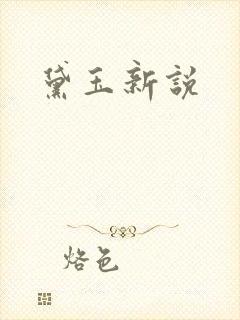 黛玉新說
烙色